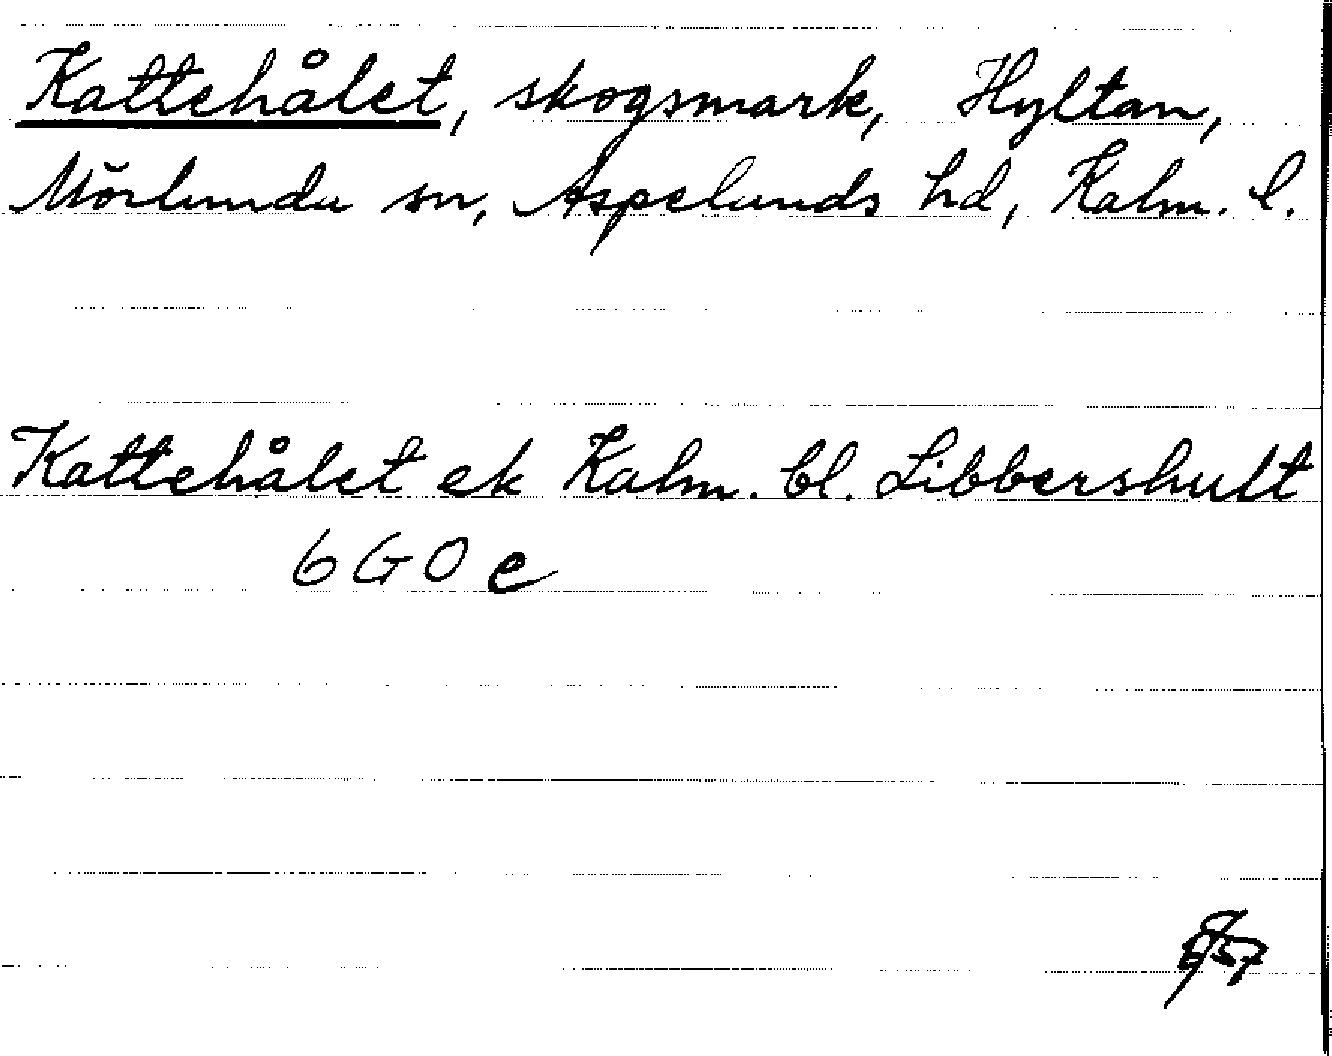 Kattehålet, skogsmark, Hyltan,
Mörlunda sn, Aspelands hd, Kalm. l.
Kattehålet ek Kalm. bl. Libbershult
6 G 0 e